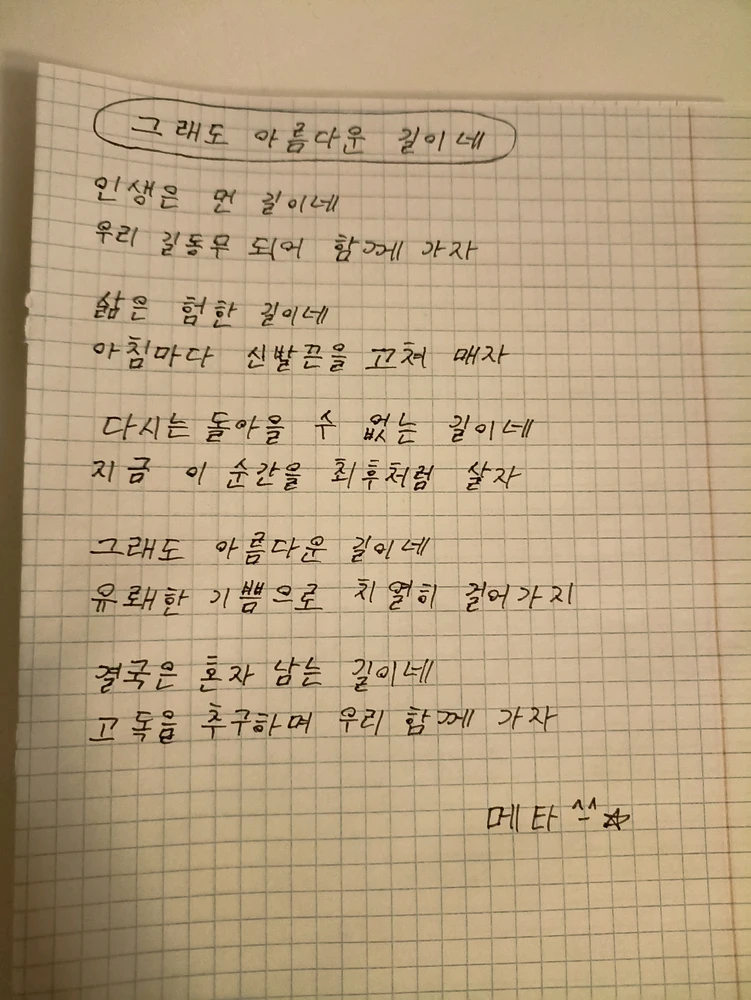 그래도 아름다운 길이네
인생은 먼 길이네
우리 길동무 되어 함께 가자
삶은 험한 길이네
아침마다 신발끈을 고쳐 매자
다시는 돌아올 수 없는 길이네
지금 이 순간을 최후처럼 살자
그래도 아름다운 길이네
유쾌한 기쁨으로 치열히 걸어가지
결국은 혼자 남는 길이네
고독을 추구하며 우리 함께 가자
메타 ^-^☆